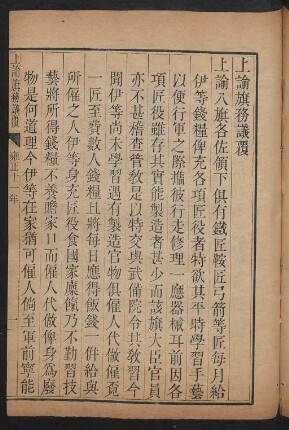 上諭旗務議覆
上諭八旗各佐領下俱有鐵匠鞍匠弓箭等匠每月給
伊等錢糧俾充各項匠役者特欲其平時學習手藝
以便行軍之際攜彼行走修理一應器械耳前因各
項匠役雖存其實能製造者甚少而該旗大臣官員
亦不甚稽查管敎是以特交與武備院令其敎習今
聞伊等尚未學習遇有製造官物俱僱人代做僱覔
一匠至費數人錢糧且將每日應得飯錢一倂給與
所僱之人伊等身充匠役食國家廩餼乃不勤習技
藝將所得錢糧不養贍家口而僱人代做俾身爲廢
物是何道理今伊等在家猶可僱人倘至軍前寧能
上諭旗務議覆
雍正十一年